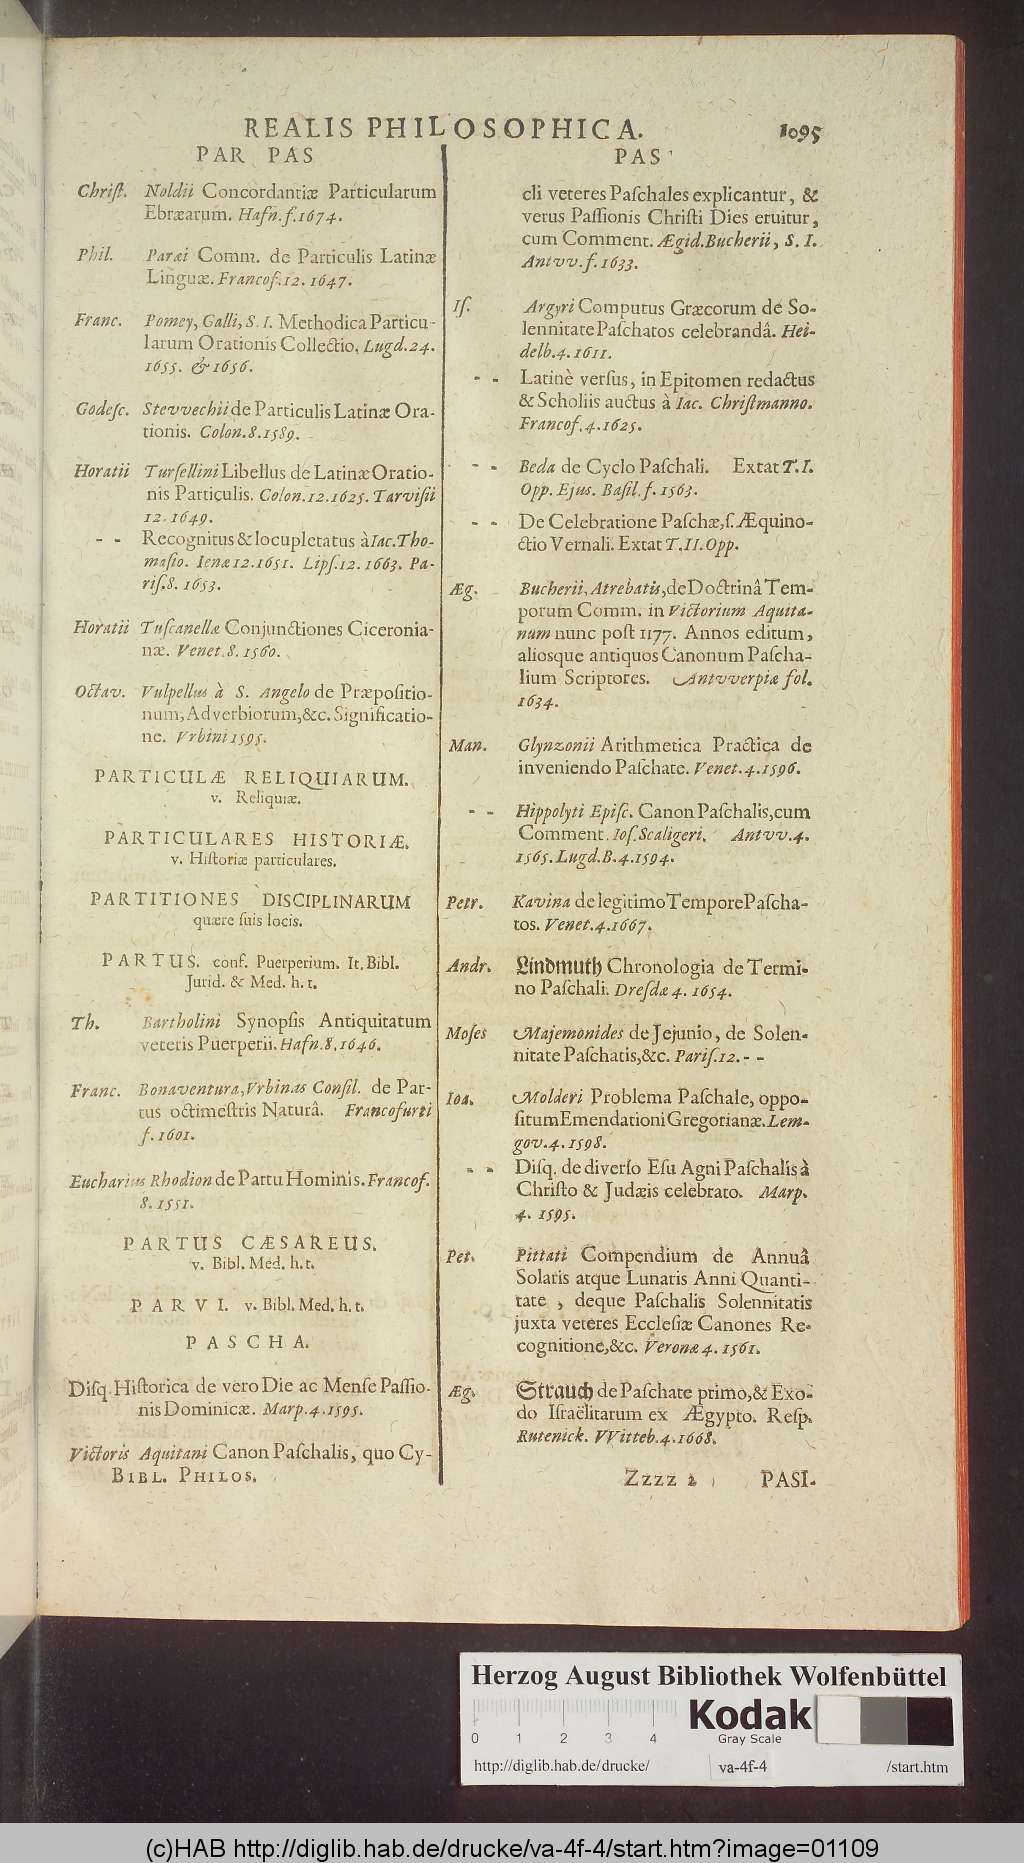 REALIS PHILOSOPHICA. 1095
PAR PAS
Christ. Noldii Concordantiæ Particularum
Ebræarum. Hafn. f. 1674.
Phil. Paræi Comm. de Particulis Latinæ
Linguæ. Francof. 12. 1647.
Franc. Pomey, Galli, S. I. Methodica Particu-
larum Orationis Collectio. Lugd. 24.
1655. & 1656.
Godesc. Stevvechii de Particulis Latinæ Ora-
tionis. Colon. 8. 1589.
Horatii Tursellini Libellus de Latinæ Oratio-
nis Particulis. Colon. 12. 1625. Tarvisii
12. 1649.
- - Recognitus & locupletatus à Iac. Tho-
masio. Ienæ 12. 1651. Lips. 12. 1663. Pa-
ris. 8. 1653.
Horatii Tuscanellæ Conjunctiones Ciceronia-
næ. Venet. 8. 1560.
Octav. Vulpellus à S. Angelo de Præpositio-
num, Adverbiorum, &c. Significatio-
ne. Vrbini 1595.
PARTICULÆ RELIQUIARUM.
v. Reliquiæ.
PARTICULARES HISTORIÆ.
v. Historiæ particulares.
PARTITIONES DISCIPLINARUM
quære suis locis.
PARTUS. conf. Puerperium. It. Bibl.
Jurid. & Med. h. t.
Th. Bartholini Synopsis Antiquitatum
veteris Puerperii. Hafn. 8. 1646.
Franc. Bonaventura, Vrbinas Consil. de Par-
tus octimestris Naturâ. Francofurti
f. 1601.
Eucharius Rhodion de Partu Hominis. Francof.
8. 1551.
PARTUS CÆSAREUS.
v. Bibl. Med. h. t.
PARVI. v. Bibl. Med. h. t.
PASCHA.
Disq. Historica de vero Die ac Mense Passio-
nis Dominicæ. Marp. 4. 1595.
Victoris Aquitani Canon Paschalis, quo Cy-
BIBL. PHILOS.
PAS
cli veteres Paschales explicantur, &
verus Passionis Christi Dies eruitur,
cum Comment. Ægid. Bucherii, S. I.
Antvv. f. 1633.
Is. Argyri Computus Græcorum de So-
lennitate Paschatos celebrandâ. Hei-
delb. 4. 1611.
- - Latinè versus, in Epitomen redactus
& Scholiis auctus à Iac. Christmanno.
Francof. 4. 1625.
- - Beda de Cyclo Paschali. Extat T. I.
Opp. Ejus. Basil. f. 1563.
- - De Celebratione Paschæ, s. Æquino-
ctio Vernali. Extat T. II. Opp.
Æg. Bucherii, Atrebatis, de Doctrinâ Tem-
porum Comm. in Victorium Aquita-
num nunc post 1177. Annos editum,
aliosque antiquos Canonum Pascha-
lium Scriptores. Antvverpiæ fol.
1634.
Man. Glynzonii Arithmetica Practica de
inveniendo Paschate. Venet. 4. 1596.
- - Hippolyti Episc. Canon Paschalis, cum
Comment. Ios. Scaligeri. Antvv. 4.
1565. Lugd. B. 4. 1594.
Petr. Kavina de legitimo Tempore Pascha-
tos. Venet. 4. 1667.
Andr. Lindmuth Chronologia de Termi-
no Paschali. Dresdæ 4. 1654.
Moses Majemonides de Jejunio, de Solen-
nitate Paschatis, &c. Paris. 12. - -
Ioa. Molderi Problema Paschale, oppo-
situm Emendationi Gregorianæ. Lem-
gov. 4. 1598.
- - Disq. de diverso Esu Agni Paschalis à
Christo & Judæis celebrato. Marp.
4. 1595.
Pet. Pittati Compendium de Annuâ
Solaris atque Lunaris Anni Quanti-
tate, deque Paschalis Solennitatis
juxta veteres Ecclesiæ Canones Re-
cognitione, &c. Veronæ 4. 1561.
Æg. Strauch de Paschate primo, & Exo-
do Israëlitarum ex Ægypto. Resp.
Rutenick. VVitteb. 4. 1668.
Zzzz 2 PASI-
Herzog August Bibliothek Wolfenbüttel
0 1 2 3 4
Kodak
Gray Scale
http://diglib.hab.de/drucke/ va-4f-4 /start.htm
(c)HAB http://diglib.hab.de/drucke/va-4f-4/start.htm?image=01109